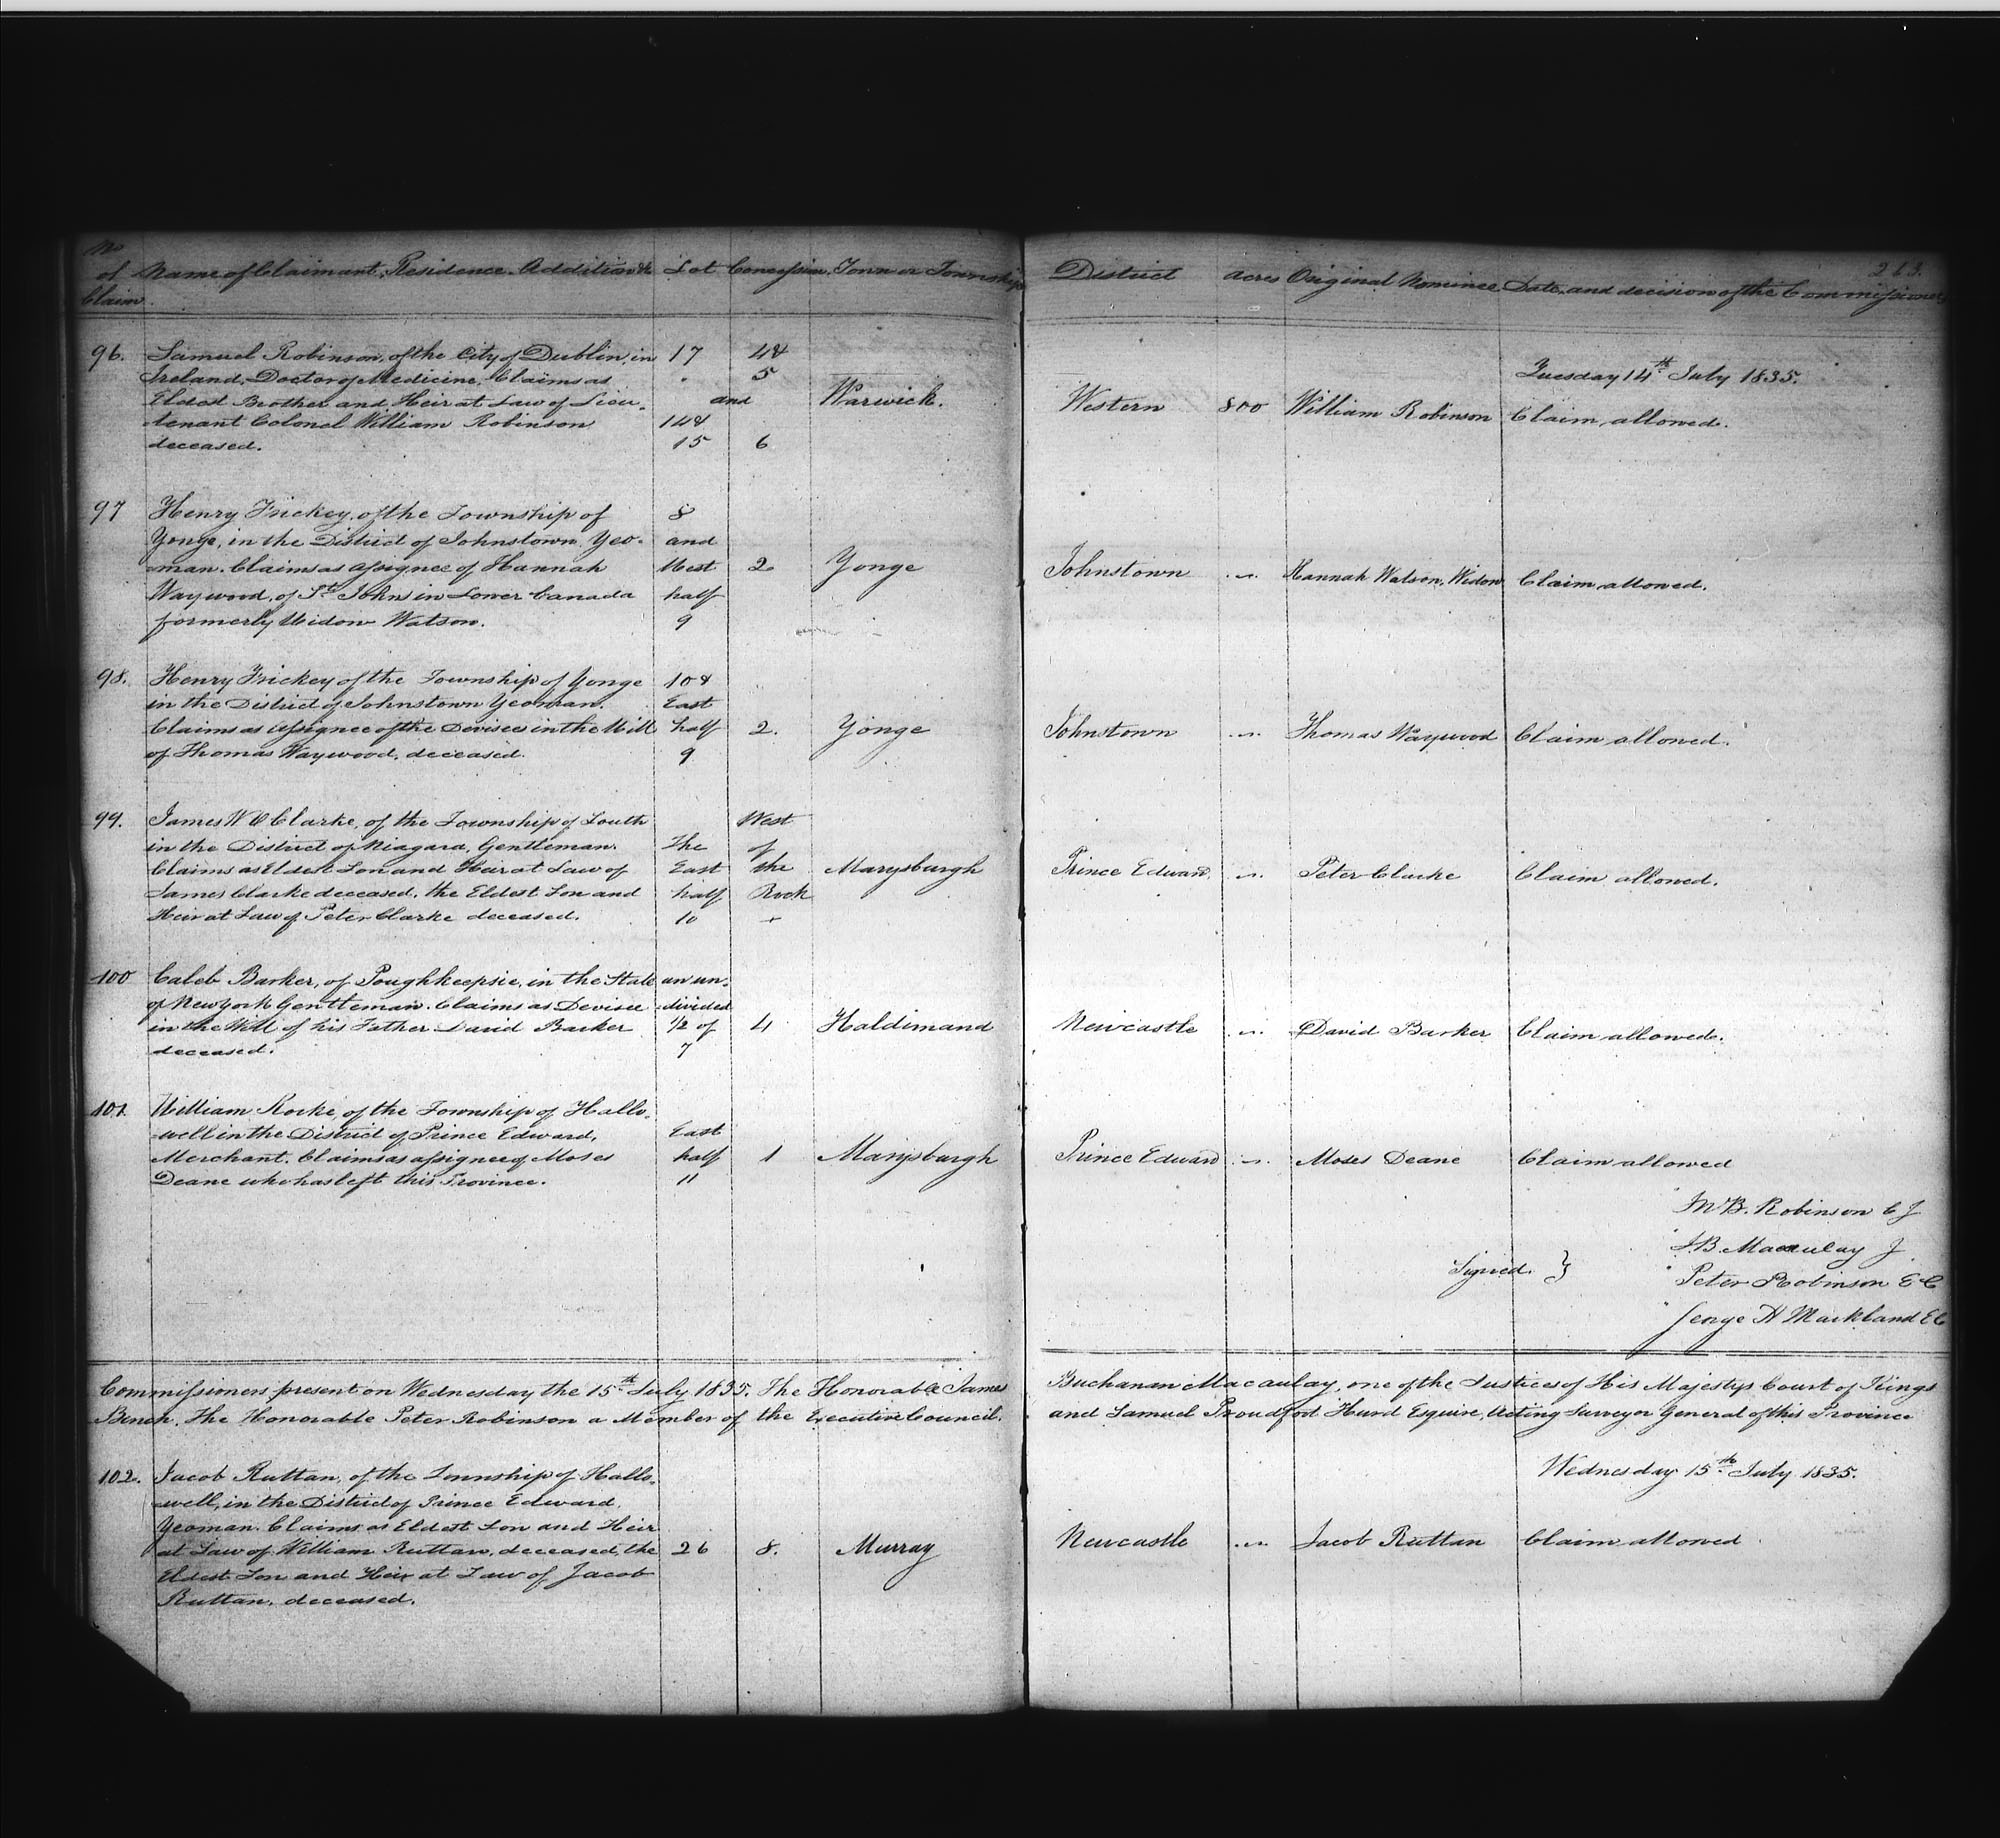 No
of Name of Claimant, Residence, Addition &c Lot Concession Town or Township
Claim
96. Samuel Robinson, of the City of Dublin, in 17 4 &
Ireland, Doctor of Medicine, Claims as " 5
Eldest Brother and Heir at Law of Lieu- and Warwick.
tenant Colonel William Robinson 14 &
deceased. 15 6
97 Henry Trickey, of the Township of 8
Yonge, in the District of Johnstown, Yeo- and
man. Claims as assignee of Hannah West 2 Yonge
Waywood, of St. Johns in Lower Canada half
formerly Widow Watson. 9
98. Henry Trickey of the Township of Yonge 10 &
in the District of Johnstown Yeoman. East
Claims as assignee of the Devisees in the Will half 2. Yonge
of Thomas Waywood, deceased. 9
99. James W O Clarke, of the Township of Louth West
in the District of Niagara, Gentleman. The of
Claims as Eldest Son and Heir at Law of East the Marysburgh
James Clarke deceased, the Eldest Son and half Rock
Heir at Law of Peter Clarke deceased. 10 +
100 Caleb Barker, of Poughkeepsie, in the State an un-
of New York Gentleman. Claims as Devisee divided
in the Will of his Father David Barker 1/2 of 4 Haldimand
deceased. 7
101. William Rorke, of the Township of Hallo-
well in the District of Prince Edward, East
Merchant. Claims as assignee of Moses half 1 Marysburgh
Deane who has left this Province. 11
Commissioners present on Wednesday the 15th July 1835. The Honorable James
Bench. The Honorable Peter Robinson a Member of the Executive Council.
102. Jacob Ruttan, of the Township of Hallo-
well, in the District of Prince Edward.
Yeoman. Claims as Eldest Son and Heir
at Law of William Ruttan, deceased, the 26 8. Murray
Eldest Son and Heir at Law of Jacob
Ruttan, deceased.
263.
District acres Original Nominee Date, and decision of the Commissioners
Tuesday 14th July 1835.
Western 800 William Robinson Claim allowed.
Johnstown " Hannah Watson, Widow Claim allowed.
Johnstown " Thomas Waywood Claim allowed.
Prince Edward " Peter Clarke Claim allowed.
Newcastle " David Barker Claim allowed.
Prince Edward " Moses Deane Claim allowed
" B. Robinson C J
" J. B. Macaulay J
Signed. } " Peter Robinson E C
" George H Markland E C
Buchanan Macaulay, one of the Justices of His Majestys Court of Kings
and Samuel Proudfoot Hurd Esquire, Acting Surveyor General of this Province
Wednesday 15th July 1835.
Newcastle " Jacob Ruttan Claim allowed.